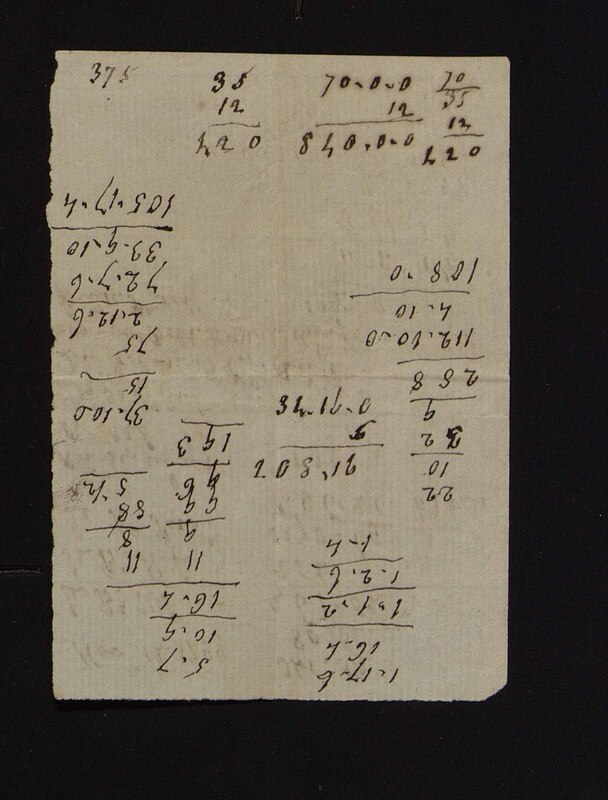 375
35
12
420
70.0.0
12
840.0.0
70
35
12
420
1.17.6
16.4
1.1.2
1.2.6
1.4
5.7
10.9
16.4
11
9
99
11
8
88
5½
22
10
32
9
288
112.10.0
4.10
108.0
37.10.0
15
75
2.12.6
72.7.6
33.9.10
105.17.4